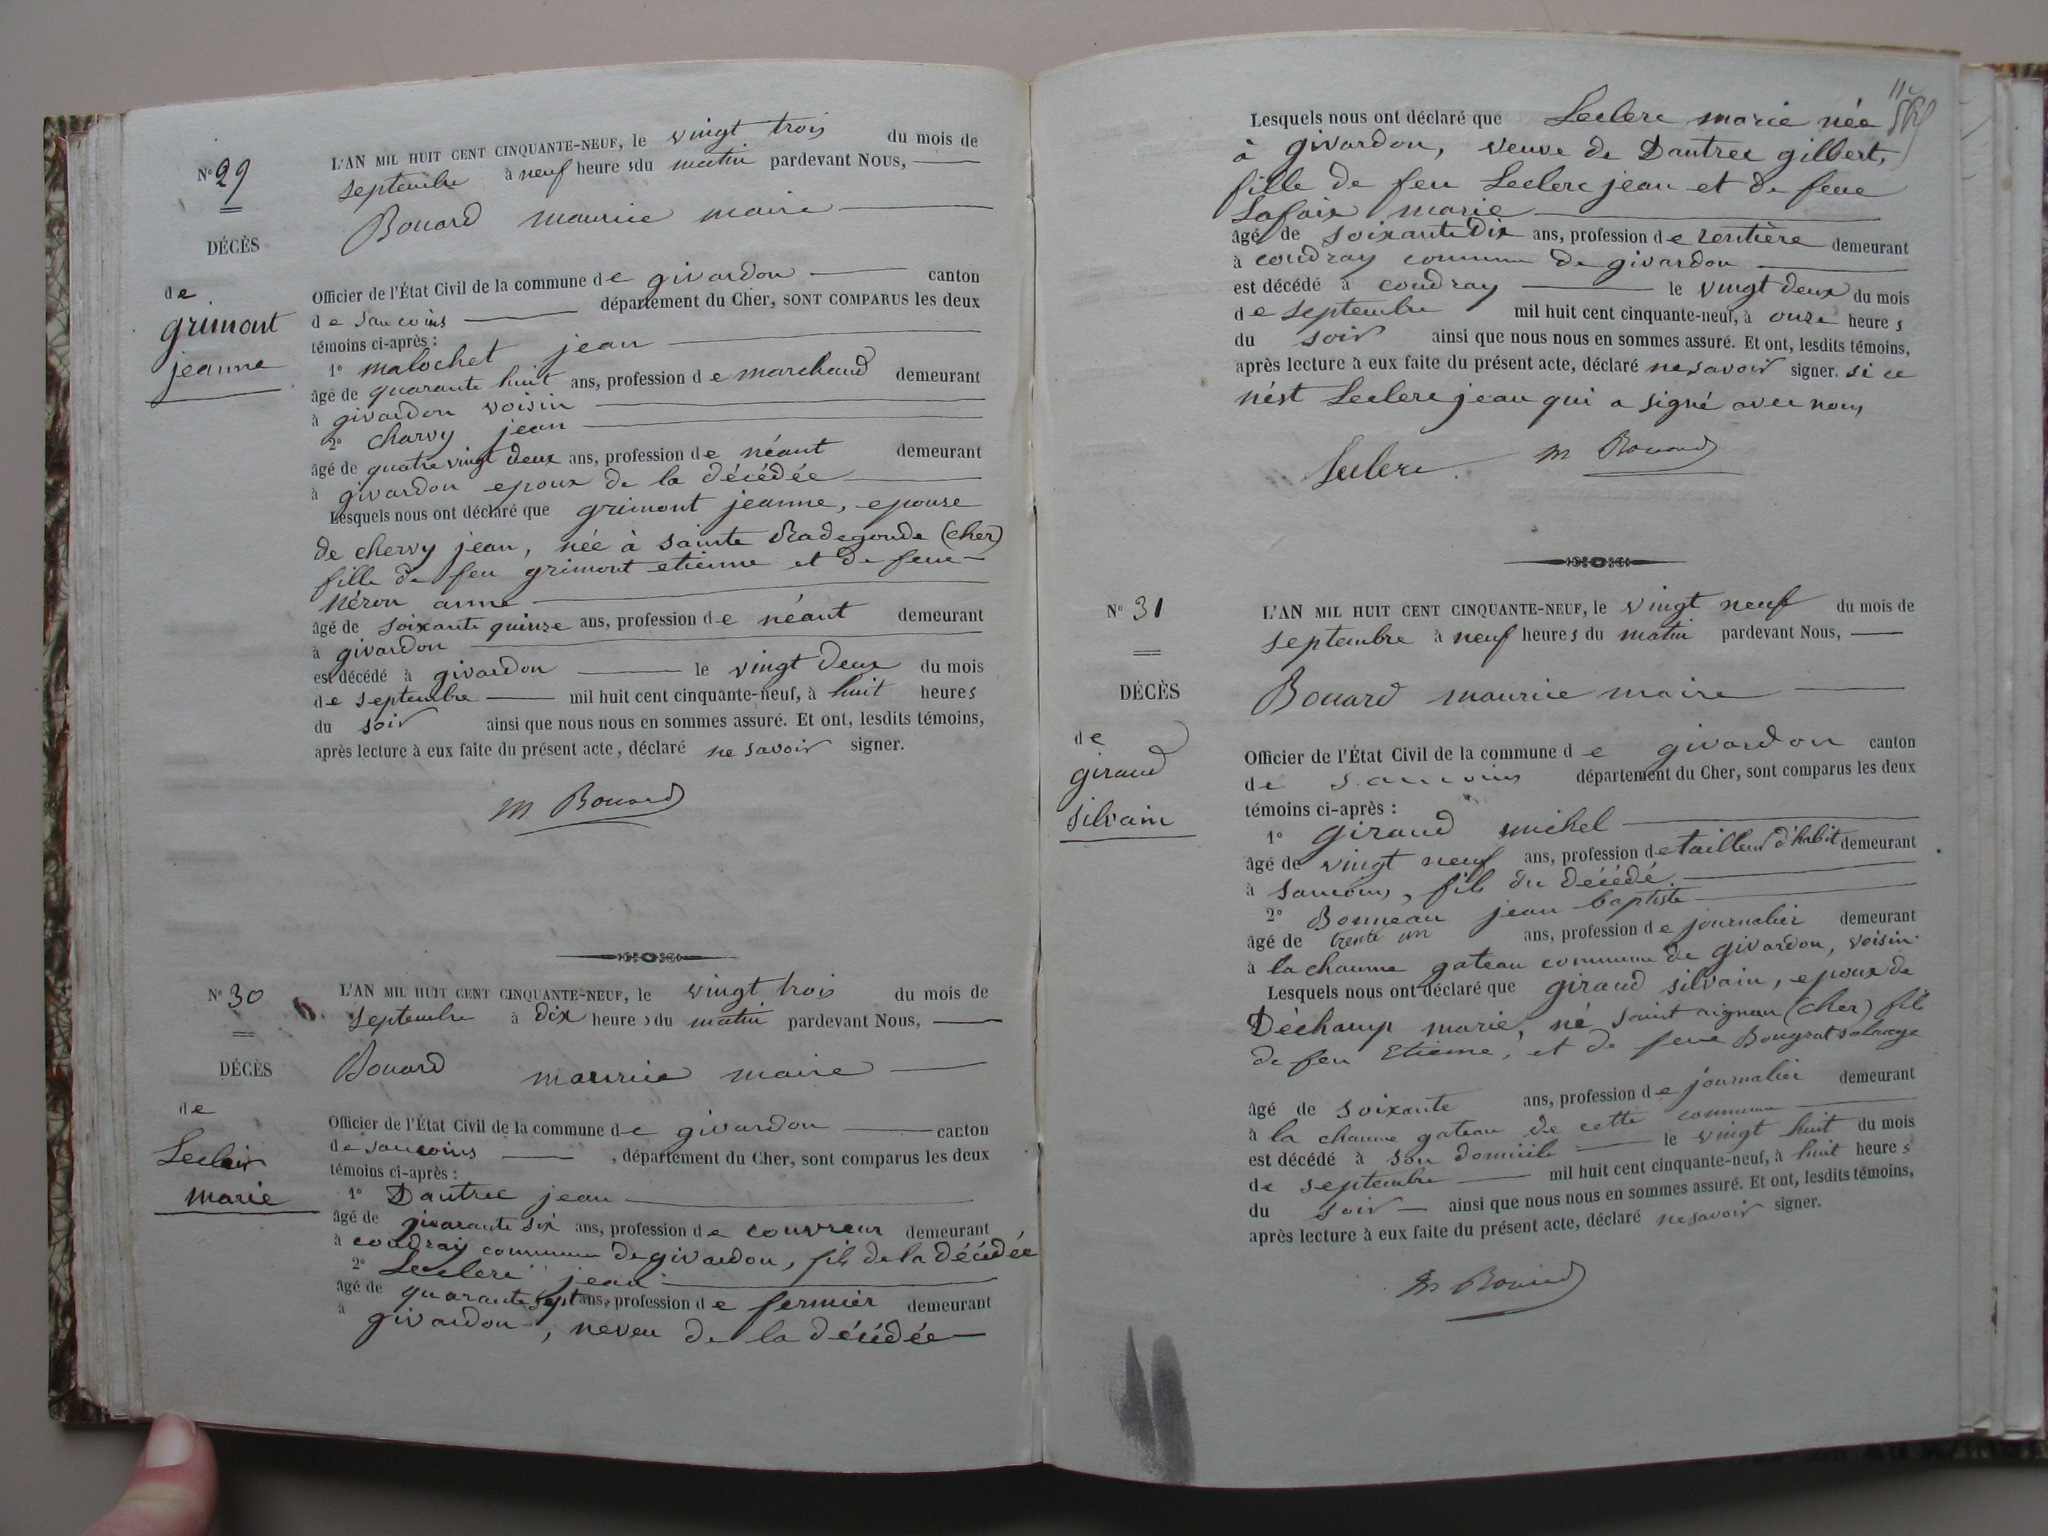 N° 29
DÉCÈS
de
grimont
jeanne
L'AN MIL HUIT CENT CINQUANTE-NEUF, le vingt trois du mois de
septembre à neuf heures du matin pardevant Nous,
Bouard maurice maire
Officier de l'État Civil de la commune de givardon canton
de sancoins département du Cher, SONT COMPARUS les deux
témoins ci-après :
1° malochet jean
âgé de quarante huit ans, profession de marchand demeurant
à givardon voisin
2° charvy jean
âgé de quatre vingt deux ans, profession de néant demeurant
à givardon epoux de la décédée
Lesquels nous ont déclaré que grimont jeanne, epouse
de chervy jean, née à sainte Radegonde (cher)
fille de feu grimont etienne et de feue
néron anne
âgé de soixante quinze ans, profession de néant demeurant
à givardon
est décédé à givardon le vingt deux du mois
de septembre mil huit cent cinquante-neuf, à huit heures
du soir ainsi que nous nous en sommes assuré. Et ont, lesdits témoins,
après lecture à eux faite du présent acte, déclaré ne savoir signer.
M Bouard
N° 30
DÉCÈS
de
Leclerc
marie
L'AN MIL HUIT CENT CINQUANTE-NEUF, le vingt trois du mois de
septembre à dix heures du matin pardevant Nous,
Bouard maurice maire
Officier de l'État Civil de la commune de givardon canton
de sancoins, département du Cher, sont comparus les deux
témoins ci-après :
1° Dautrec jean
âgé de quarante six ans, profession de couvreur demeurant
à coudray commune de givardon, fils de la décédée
2° Leclerc jean
âgé de quarante sept ans, profession de fermier demeurant
à givardon, neveu de la décédée
Lesquels nous ont déclaré que Leclerc marie née
à givardon, veuve de Dautrec gilbert,
fille de feu Leclerc jean et de feue
Lafaix marie
âgé de soixante Dix ans, profession de rentière demeurant
à coudray commune de givardon
est décédé à coudray le vingt deux du mois
de septembre mil huit cent cinquante-neuf, à onze heures
du soir ainsi que nous nous en sommes assuré. Et ont, lesdits témoins,
après lecture à eux faite du présent acte, déclaré ne savoir signer. si ce
n'est Leclerc jean qui a signé avec nous
Leclerc M Bouard
N° 31
DÉCÈS
de
giraud
silvain
L'AN MIL HUIT CENT CINQUANTE-NEUF, le vingt neuf du mois de
septembre à neuf heures du matin pardevant Nous,
Bouard maurice maire
Officier de l'État Civil de la commune de givardon canton
de sancoins département du Cher, sont comparus les deux
témoins ci-après :
1° giraud michel
âgé de vingt neuf ans, profession de tailleur d'habit demeurant
à sancoins, fils du décédé.
2° Bonneau jean baptiste
âgé de trente un ans, profession de journalier demeurant
à la chaume gateau commune de givardon, voisin
Lesquels nous ont déclaré que giraud silvain, epoux de
Déchamp marie, né saint aignan (cher) fils
de feu Etienne, et de feue Bougrat solange
âgé de soixante ans, profession de journalier demeurant
à la chaume gateau de cette commune
est décédé à son domicile le vingt huit du mois
de septembre mil huit cent cinquante-neuf, à huit heures
du soir ainsi que nous nous en sommes assuré. Et ont, lesdits témoins,
après lecture à eux faite du présent acte, déclaré ne savoir signer.
M Bouard